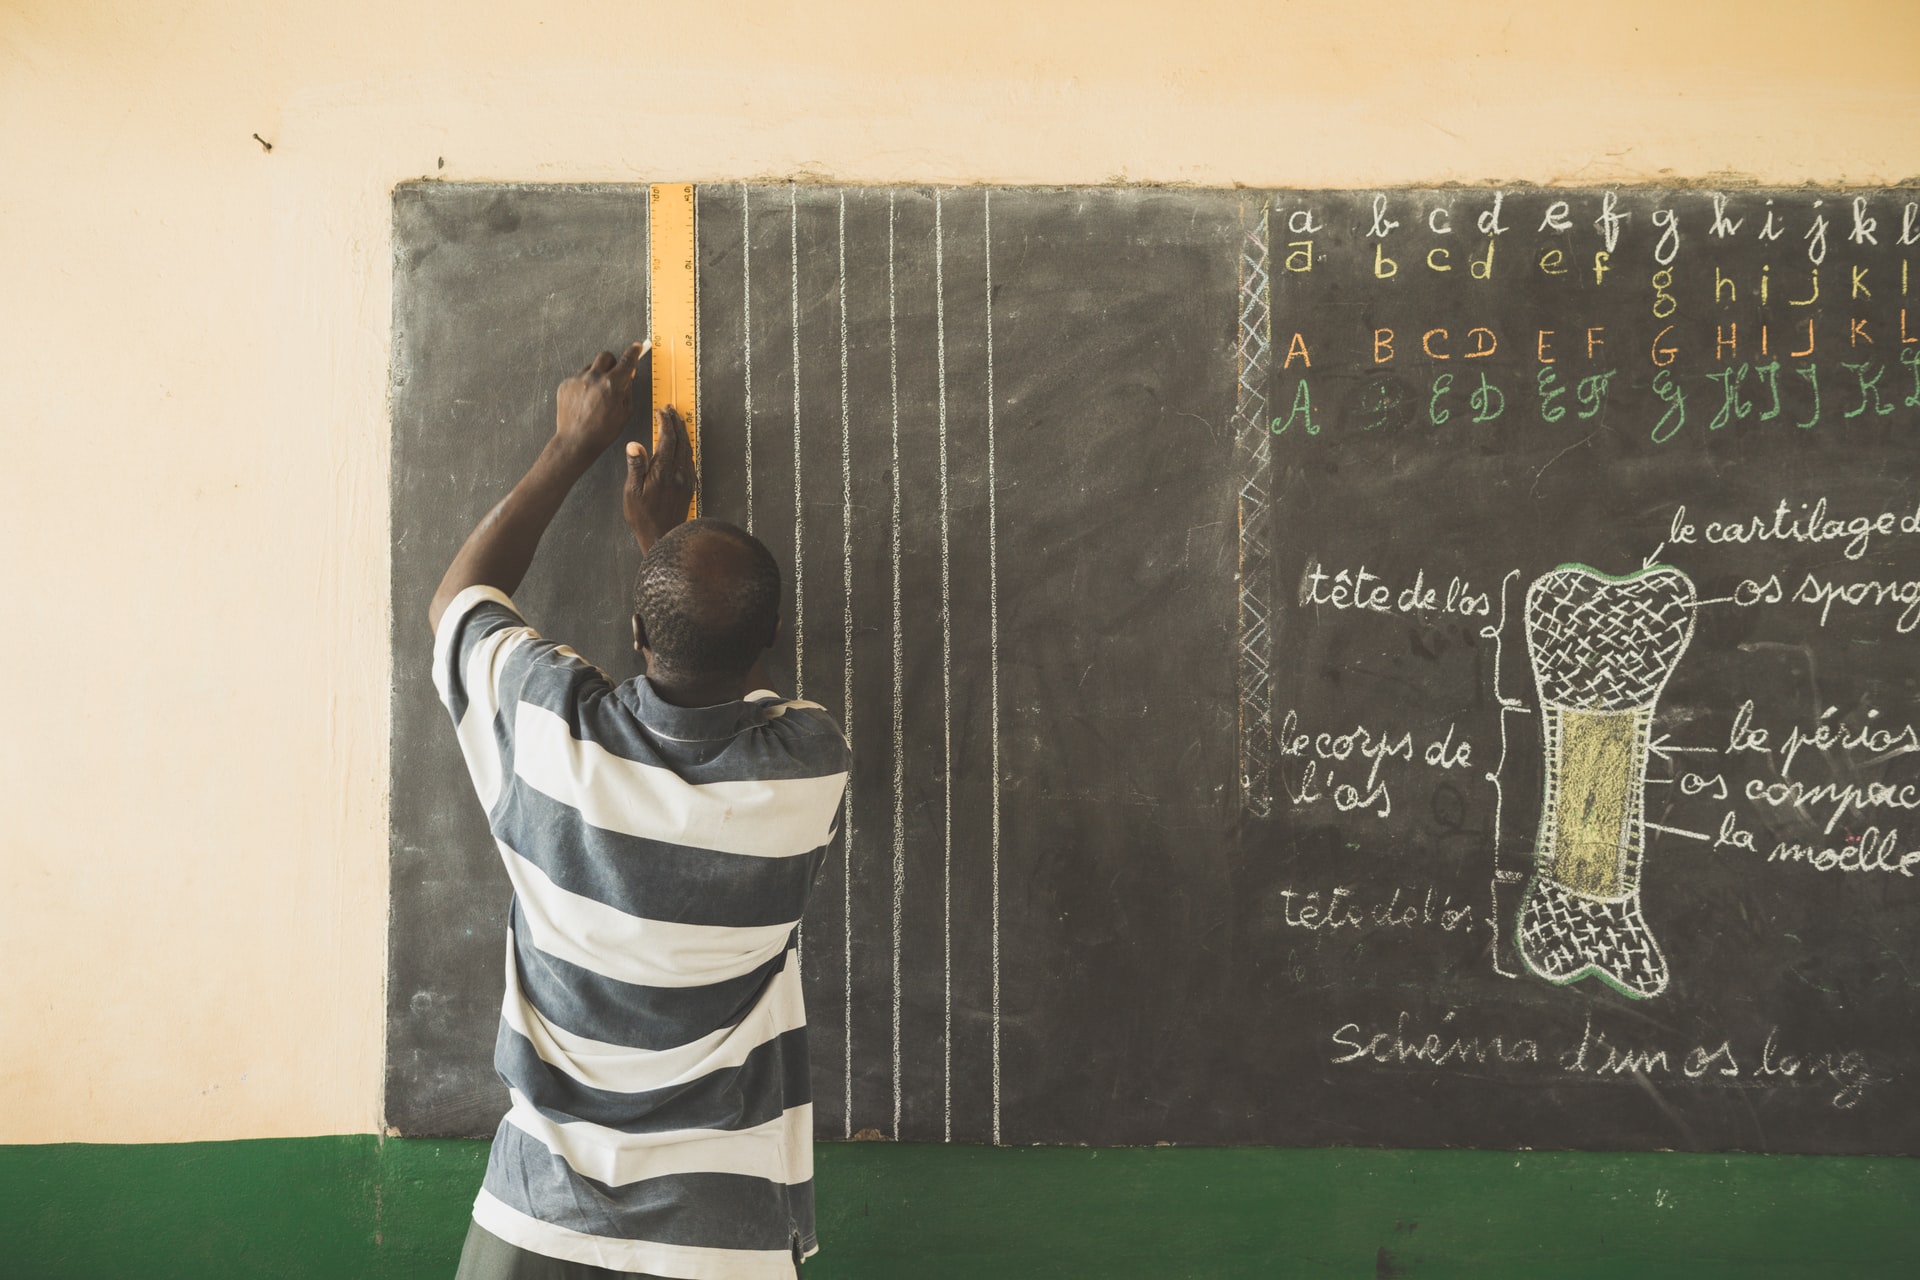 a b c d e f g h i j k l
a b c d e f g h i j k l
A B C D E F G H I J K L
A E D E F G H I J K L
le cartilage d
tête de l'os
os spong
le corps de
l'os
le périos
os compac
la moëlle
tête de l'os
Schéma d'un os long